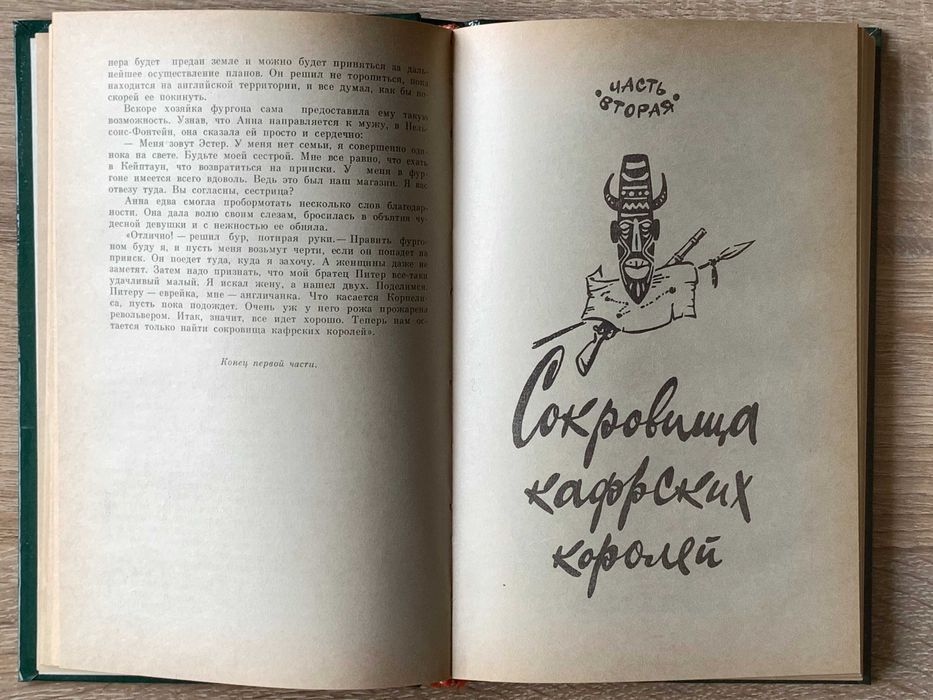 нера будет предан земле и можно будет приняться за даль-
нейшее осуществление планов. Он решил не торопиться, пока
находится на английской территории, и все думал, как бы по-
скорей ее покинуть.
Вскоре хозяйка фургона сама предоставила ему такую
возможность. Узнав, что Анна направляется к мужу, в Нель-
сонс-Фонтейн, она сказала ей просто и сердечно:
— Меня зовут Эстер. У меня нет семьи, я совершенно оди-
нока на свете. Будьте моей сестрой. Мне все равно, что ехать
в Кейптаун, что возвратиться на прииски. У меня в фур-
гоне имеется всего вдоволь. Ведь это был наш магазин. Я вас
отвезу туда. Вы согласны, сестрица?
Анна едва смогла пробормотать несколько слов благодар-
ности. Она дала волю своим слезам, бросилась в объятия чу-
десной девушки и с нежностью ее обняла.
«Отлично! — решил бур, потирая руки.— Править фурго-
ном буду я, и пусть меня возьмут черти, если он попадет на
прииск. Он поедет туда, куда я захочу. А женщины даже не
заметят. Затем надо признать, что мой братец Питер все-таки
удачливый малый. Я искал жену, а нашел двух. Поделимся.
Питеру — еврейка, мне — англичанка. Что касается Корнели-
са, пусть пока подождет. Очень уж у него рожа прожарена
револьвером. Итак, значит, все идет хорошо. Теперь нам ос-
тается только найти сокровища кафрских королей».
Конец первой части.
• ЧАСТЬ
ВТОРАЯ •
Сокровища
кафрских
королей